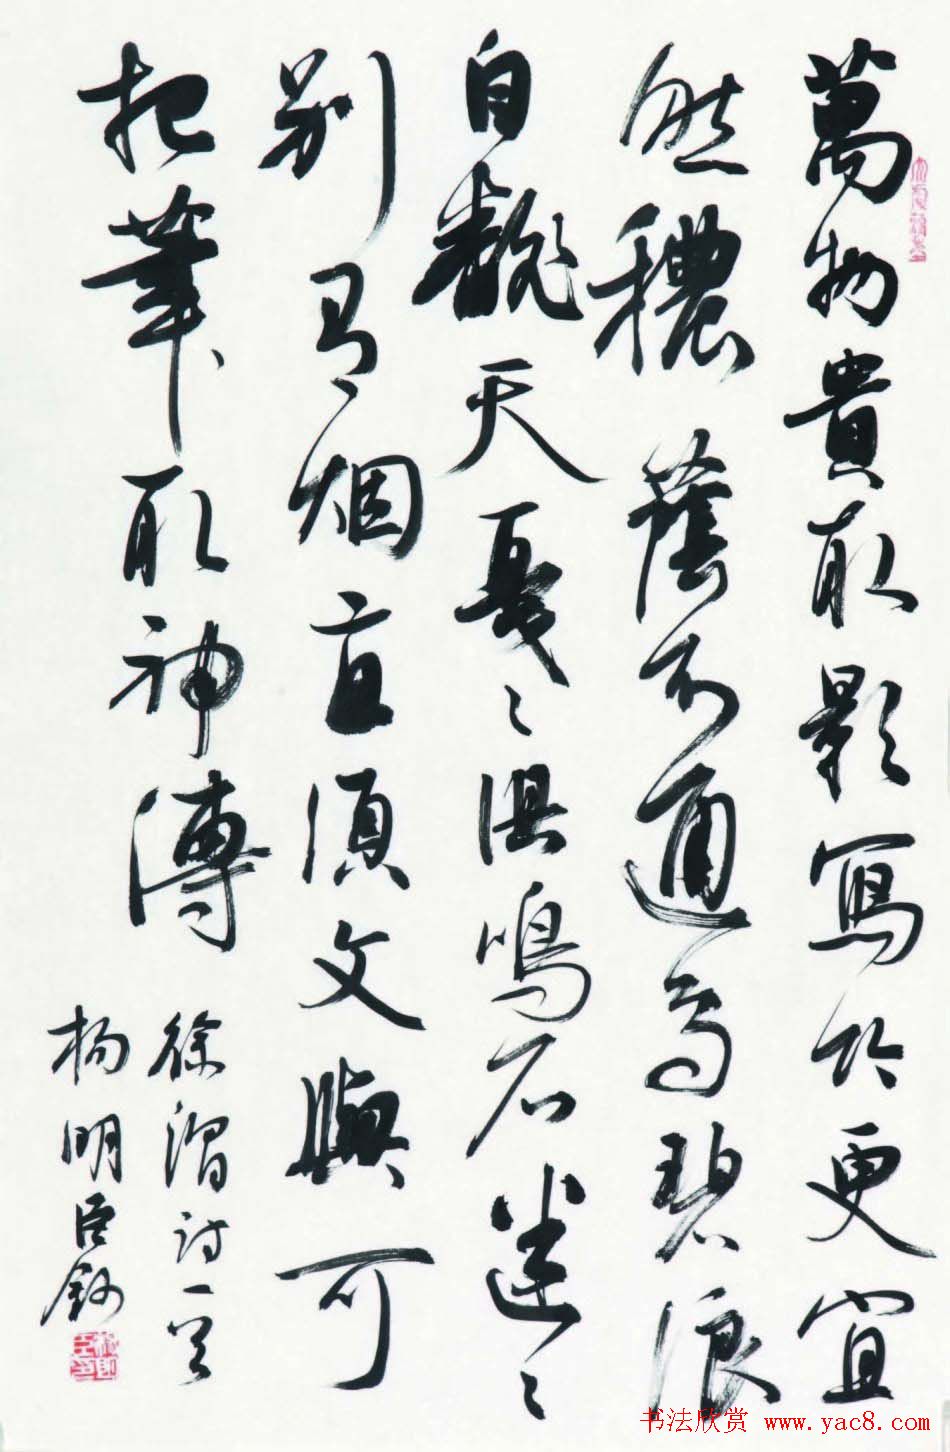 萬物貴取影寫竹更宜
然穠蔭不通鳥碧浪
自翻天戛々俱鳴石迷々
別有烟直須文與可
把筆取神傳
徐渭詩一首
楊明臣鈔
书法欣赏 www.yac8.com